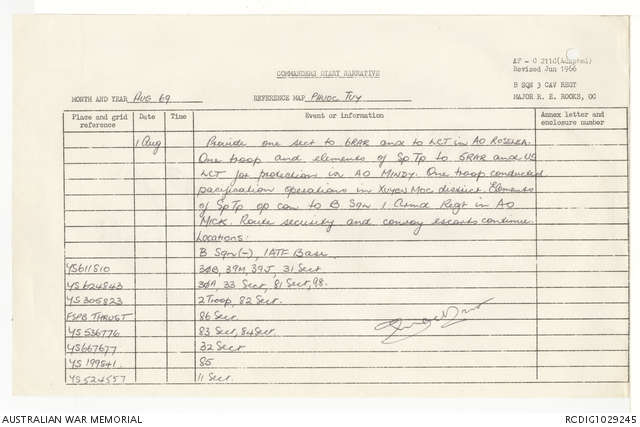 AF - C 2110(Adapted)
Revised Jun 1966
COMMANDERS DIARY NARRATIVE
B SQN 3 CAV REGT
MAJOR R. E. ROOKS, OC
MONTH AND YEAR AUG 69 REFERENCE MAP PHUOC TUY
Place and grid reference Date Time Event or information Annex letter and enclosure number
1 Aug Provide one sect to 6RAR and to LCT in AO ROSELEA.
One troop and elements of Sp Tp to 5RAR and US
LCT for protection in AO MINDY. One troop conducted
pacification operations in XUYEN MOC district. Elements
of Sp Tp op con to B Sqn 1 Armd Regt in AO
MICK. Route security and convoy escorts continue.
Locations:
B Sqn(-), 1ATF Base
YS611810 30B, 39M, 39J, 31 Sect
YS624843 30A, 33 Sect, 81 Sect, 98.
YS305823 2Troop, 82 Sect.
FSPB THRUST 86 Sect
YS536776 83 Sect, 84 Sect.
YS667677 32 Sect
YS199541 85
YS524557 11 Sect.
AUSTRALIAN WAR MEMORIAL RCDIG1029245